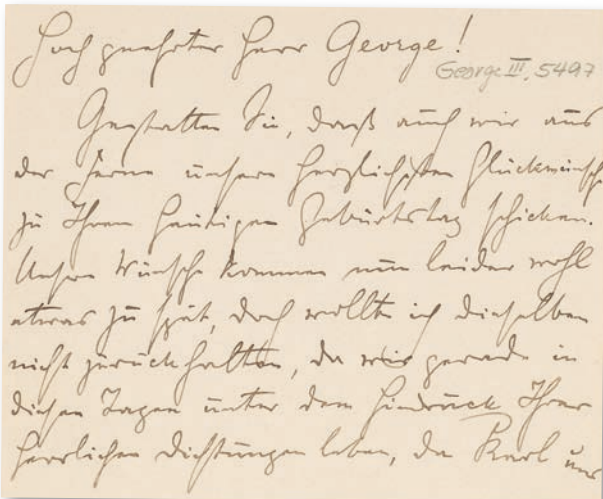 Hoch geehrter Herr George!
George III, 5497
Gestatten Sie, daß auch wir aus
der Ferne unsere herzlichsten Glückwünsche
zu Ihrem heutigen Geburtstag schicken.
Unsere Wünsche kommen nun leider wohl
etwas zu spät, doch wollte ich dieselben
nicht zurückhalten, da wir gerade in
diesen Tagen unter dem Eindruck Ihrer
herrlichen Dichtungen leben, da Karl uns